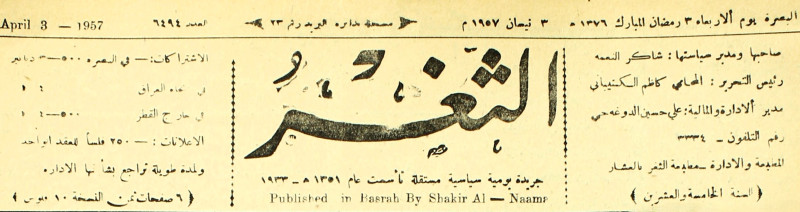 البصرة يوم ألاربعاء ٣ رمضان المبارك ١٣٧٦ ه
٣ نيسان ١٩٥٧ م
مسجلة بدائرة البريد رقم ٢٣
العدد ٦٤٩٤
April 3 — 1957
صاحبها ومدير سياستها : شاكر النعمه
رئيس التحرير : المحامي كاظم الكشيباني
مدير ألادارة والمالية : علي حسين الدوغه جي
رقم التلفون — ٣٣٣٤
المطبعة والادارة — مطبعة الثغر بالعشار
( السنة الخامسة والعشرين )
الثغر
جريدة يومية سياسية مستقلة تأسست عام ١٣٥١ ه — ١٩٣٣
Published in Basrah By Shakir Al — Naama
الاشتراكات : — في البصره ٥٠٠ — ٣ دنانير
في انحاء العراق ٤
في خارج القطر ٥٠٠ — ٤
الاعلانات : — ٢٥٠ فلساً للعقد الواحد
ولمدة طويلة تراجع بشأنها الاداره
( ٦ صفحات ثمن النسخة ١٠ فلوس )